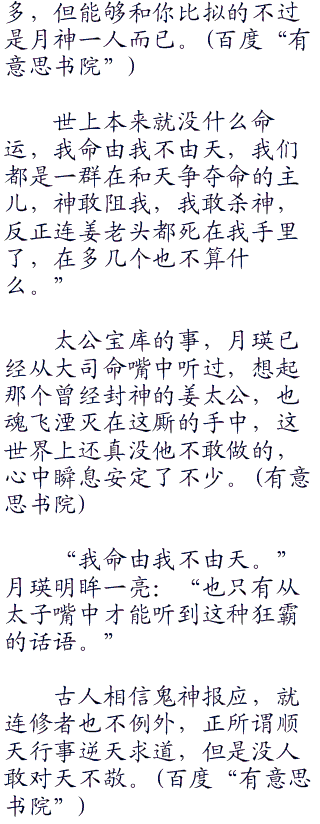 多，但能够和你比拟的不过
是月神一人而已。(百度“有
意思书院”)
世上本来就没什么命
运，我命由我不由天，我们
都是一群在和天争夺命的主
儿，神敢阻我，我敢杀神，
反正连姜老头都死在我手里
了，在多几个也不算什
么。”
太公宝库的事，月瑛已
经从大司命嘴中听过，想起
那个曾经封神的姜太公，也
魂飞湮灭在这厮的手中，这
世界上还真没他不敢做的，
心中瞬息安定了不少。(有意
思书院)
“我命由我不由天。”
月瑛明眸一亮：“也只有从
太子嘴中才能听到这种狂霸
的话语。”
古人相信鬼神报应，就
连修者也不例外，正所谓顺
天行事逆天求道，但是没人
敢对天不敬。(百度“有意思
书院”)